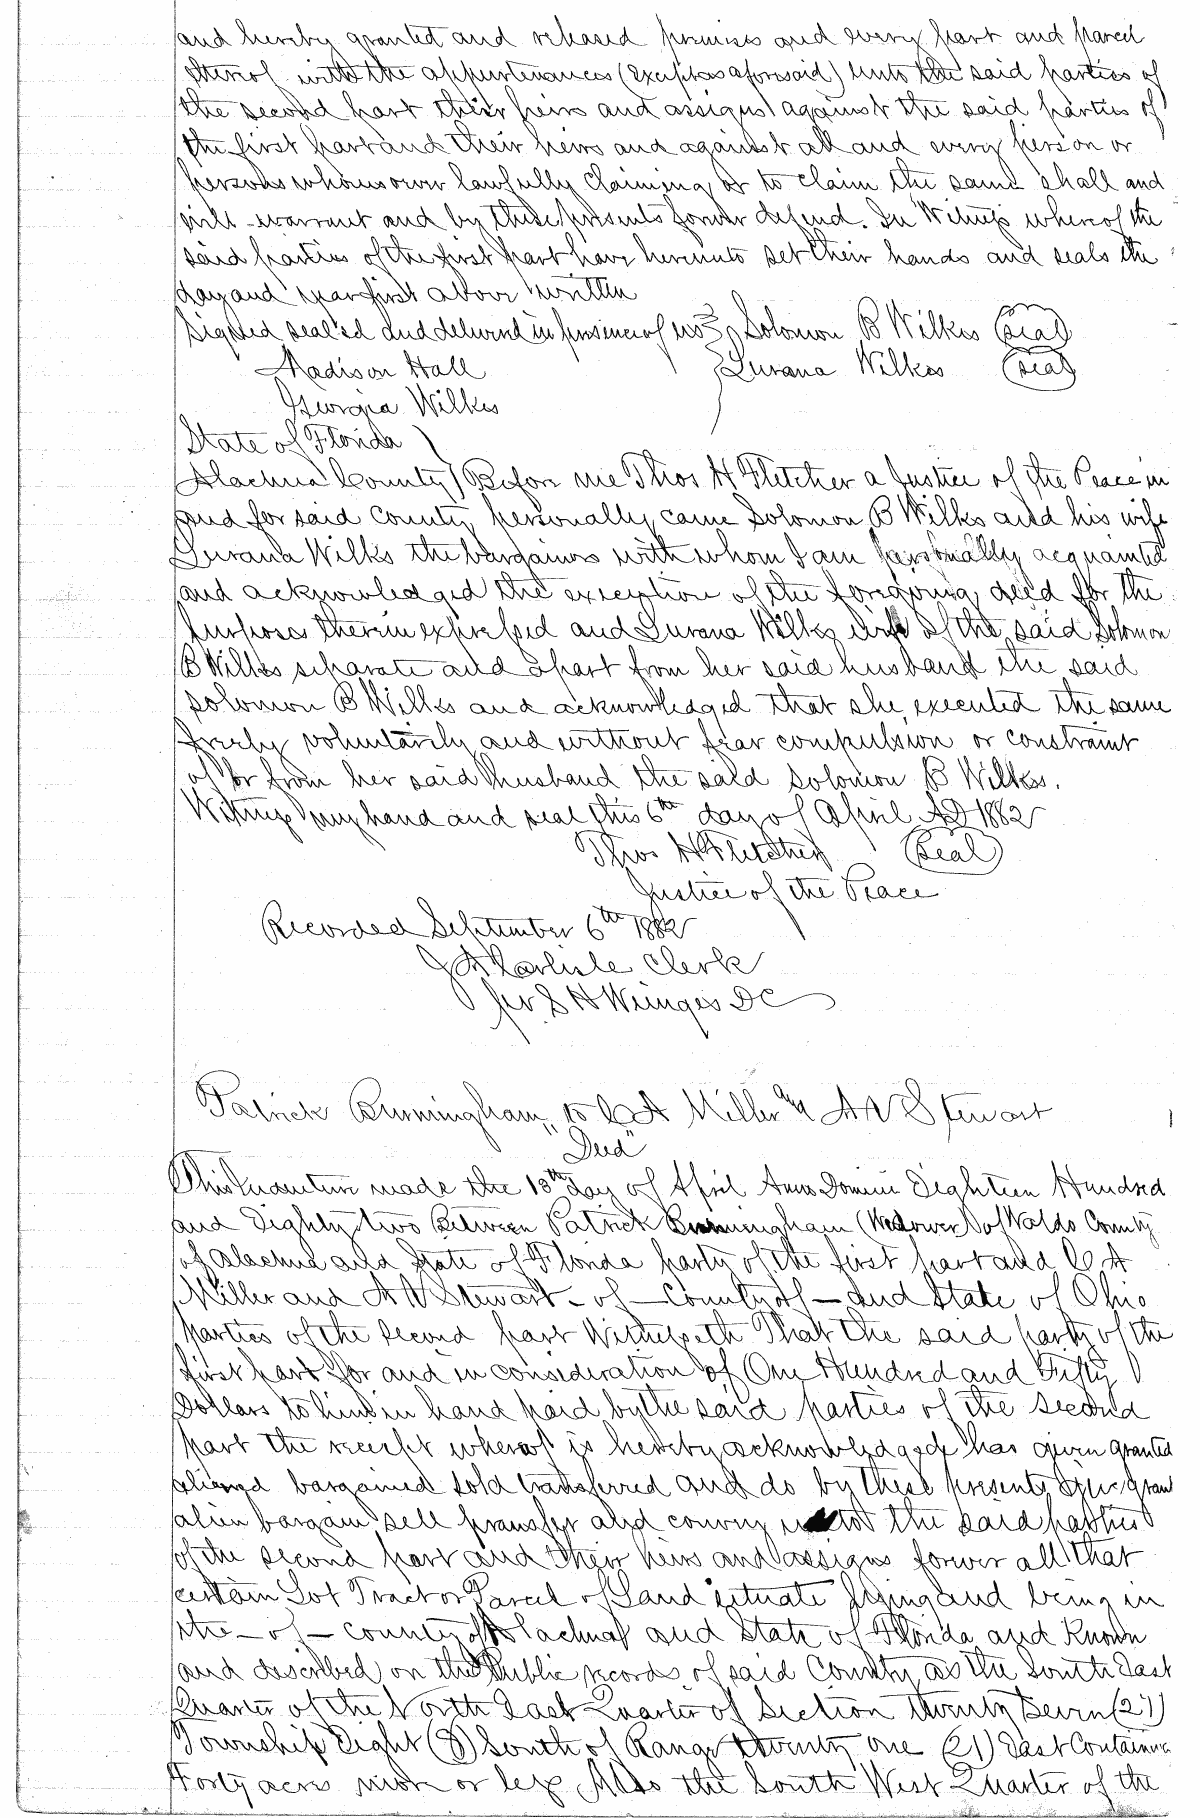 and hereby granted and released premises and every part and parcel
thereof with the appurtenances (except as aforesaid) unto the said parties of
the second part their heirs and assigns against the said parties of
the first part and their heirs and against all and every person or
persons whomsoever lawfully claiming or to claim the same shall and
will warrant and by these presents forever defend. In Witness whereof the
said parties of the first part have hereunto set their hands and seals the
day and year first above written
Signed sealed and delivered in presence of us } Solomon B Wilkes (seal)
Madison Hall Lurana Wilkes (seal)
Georgia Wilkes
State of Florida )
Alachua County ) Before me Thos H Fletcher a Justice of the Peace in
and for said County personally came Solomon B Wilks and his wife
Lurana Wilks the bargainors with whom I am personally acquainted
and acknowledged the execution of the foregoing deed for the
purposes therein expressed and Lurana Wilks wife of the said Solomon
B Wilks separate and apart from her said husband the said
Solomon B Wilks and acknowledged that she executed the same
freely voluntarily and without fear compulsion or constraint
of or from her said husband the said Solomon B Wilks.
Witness my hand and seal this 6th day of April AD 1882
Thos H Fletcher (Seal)
Justice of the Peace
Recorded September 6th 1882
J A Carlisle Clerk
per S H Wienges DC
Patrick Burmingham, to C A Miller and A W Stewart
"Deed"
This Indenture made the 13th day of April Anno Domini Eighteen Hundred
and Eighty two Between Patrick Burmingham (Widower) of Waldo County
of Alachua and State of Florida party of the first part and C A
Miller and A W Stewart - of - County of - and State of Ohio
parties of the second part Witnesseth That the said party of the
first part for and in consideration of One Hundred and Fifty
Dollars to him in hand paid by the said parties of the second
part the receipt whereof is hereby acknowledged has given granted
aliened bargained sold transferred and do by these presents give grant
alien bargain sell transfer and convey unto the said parties
of the second part and their heirs and assigns forever all that
certain Lot Tract or Parcel of Land situate lying and being in
the - of - county of Alachua and State of Florida and Known
and described on the Public records of said County as the South East
Quarter of the North East Quarter of Section twenty Seven (27)
Township Eight (8) South of Range twenty one (21) East Containing
Forty acres more or less, Also the South West Quarter of the